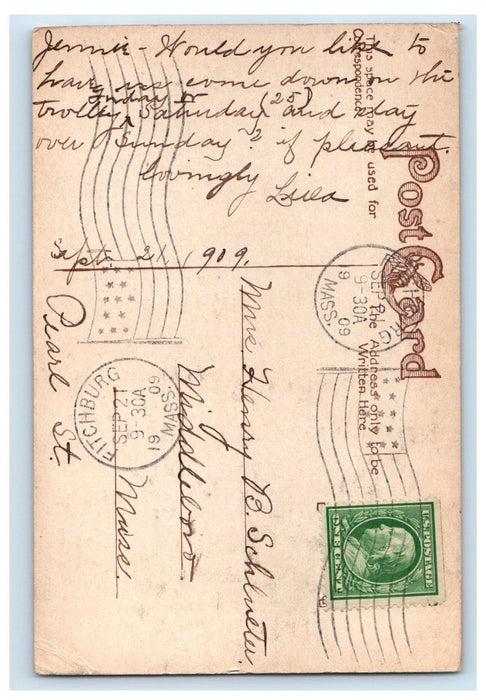 Jennie - Would you like to
have us come down on the
trolley Sunday or Saturday (25) and stay
over Sunday? if pleasant.
Lovingly Lila
Septe. 21, 1909.
Post Card
This space may be used for
Correspondence
The Address only to be
Written Here
Mrs. Henry B.
Middleboro
Mass.
Pearl St.
FITCHBURG
SEP 21
9-30A
19 09
MASS.
FITCHBURG
SEP 21
9-30A
19 09
MASS.
U.S. POSTAGE
ONE CENT